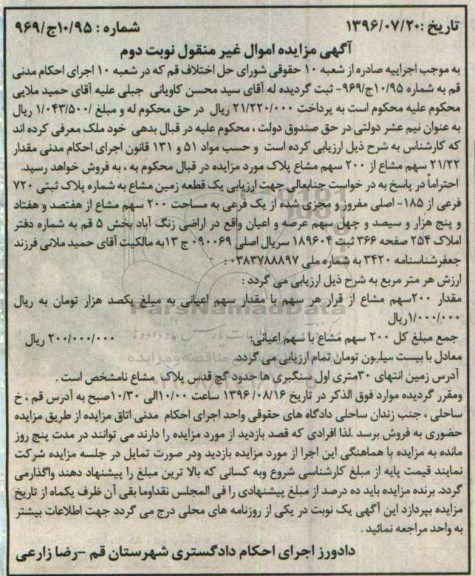 تاریخ :۱۳۹۶/۰۷/۲۰ شماره : ۱۰/۹۵ج/۹۶۹
آگهی مزایده اموال غیر منقول نوبت دوم
به موجب اجراییه صادره از شعبه ۱۰ حقوقی شورای حل اختلاف قم که در شعبه ۱۰ اجرای احکام مدنی
قم به شماره ۱۰/۹۵ج/۹۶۹- ثبت گردیده له آقای سید محسن کاویانی جبلی علیه آقای حمید ملایی
محکوم علیه محکوم است به پرداخت ۲۱/۲۲۰/۰۰۰ ریال در حق محکوم له و مبلغ /۱/۰۴۳/۵۰۰ ریال
به عنوان نیم عشر دولتی در حق صندوق دولت ، محکوم علیه در قبال بدهی خود ملک معرفی کرده اند
که کارشناس به شرح ذیل ارزیابی کرده است و حسب مواد ۵۱ و ۱۳۱ قانون اجرای احکام مدنی مقدار
۲۱/۲۲ سهم مشاع از ۲۰۰ سهم مشاع پلاک مورد مزایده در قبال محکوم به ، به فروش خواهد رسید.
احتراماً در پاسخ به در خواست جنابعالی جهت ارزیابی یک قطعه زمین مشاع به شماره پلاک ثبتی ۷۲۰
فرعی از ۱۸۵- اصلی مفروز و مجزی شده از یک فرعی به مساحت ۲۰۰ سهم مشاع از هفتصد و هفتاد
و پنج هزار و سیصد و چهل سهم عرصه و اعیان واقع در اراضی زنگ آباد بخش ۵ قم به شماره دفتر
املاک ۲۵۴ صفحه ۳۶۶ ثبت ۱۸۹۶۰۴ سریال اصلی ۰۹۰۰۶۹ ج ۱۳به مالکیت آقای حمید ملائی فرزند
جعفرشناسنامه ۳۴۲۰ به شماره ملی ۰۳۸۳۷۸۸۸۹۷:
ارزش هر متر مربع به شرح ذیل ارزیابی می گردد :
مقدار ۲۰۰سهم مشاع از قرار هر سهم با مقدار سهم اعیانی به مبلغ یکصد هزار تومان به ریال
۱/۰۰۰/۰۰۰ریال
جمع مبلغ کل ۲۰۰ سهم مشاع با سهم اعیانی: ۲۰۰/۰۰۰/۰۰۰ ریال
معادل با بیست میلیون تومان تمام ارزیابی می گردد.
آدرس زمین انتهای ۳۰متری اول سنگبری ها حدود گچ قدس پلاک مشاع نامشخص است .
ومقرر گردیده موارد فوق الذکر در تاریخ ۱۳۹۶/۰۸/۱۶ ساعت ۱۰/۰۰الی ۱۰/۳۰صبح به آدرس قم ،خ
ساحلی ، جنب زندان ساحلی دادگاه های حقوقی واحد اجرای احکام مدنی اتاق مزایده از طریق مزایده
حضوری به فروش برسد .لذا افرادی که قصد بازدید از مورد مزایده را دارند می توانند در مدت پنج روز
مانده به مزایده با هماهنگی این اجرا از مورد مزایده بازدید ودر صورت تمایل در جلسه مزایده شرکت
نمایند قیمت پایه از مبلغ کارشناسی شروع وبه کسانی که بالا ترین مبلغ را پیشنهاد دهند واگذارمی
گردد. برنده مزایده باید ده درصد از مبلغ پیشنهادی را فی المجلس نقداوما بقی آن ظرف یکماه از تاریخ
مزایده بپردازد این آگهی یک نوبت در یکی از روزنامه های محلی درج می گردد جهت اطلاعات بیشتر
به واحد مراجعه نمائید .
دادورز اجرای احکام دادگستری شهرستان قم –رضا زارعی
ParsNamadData